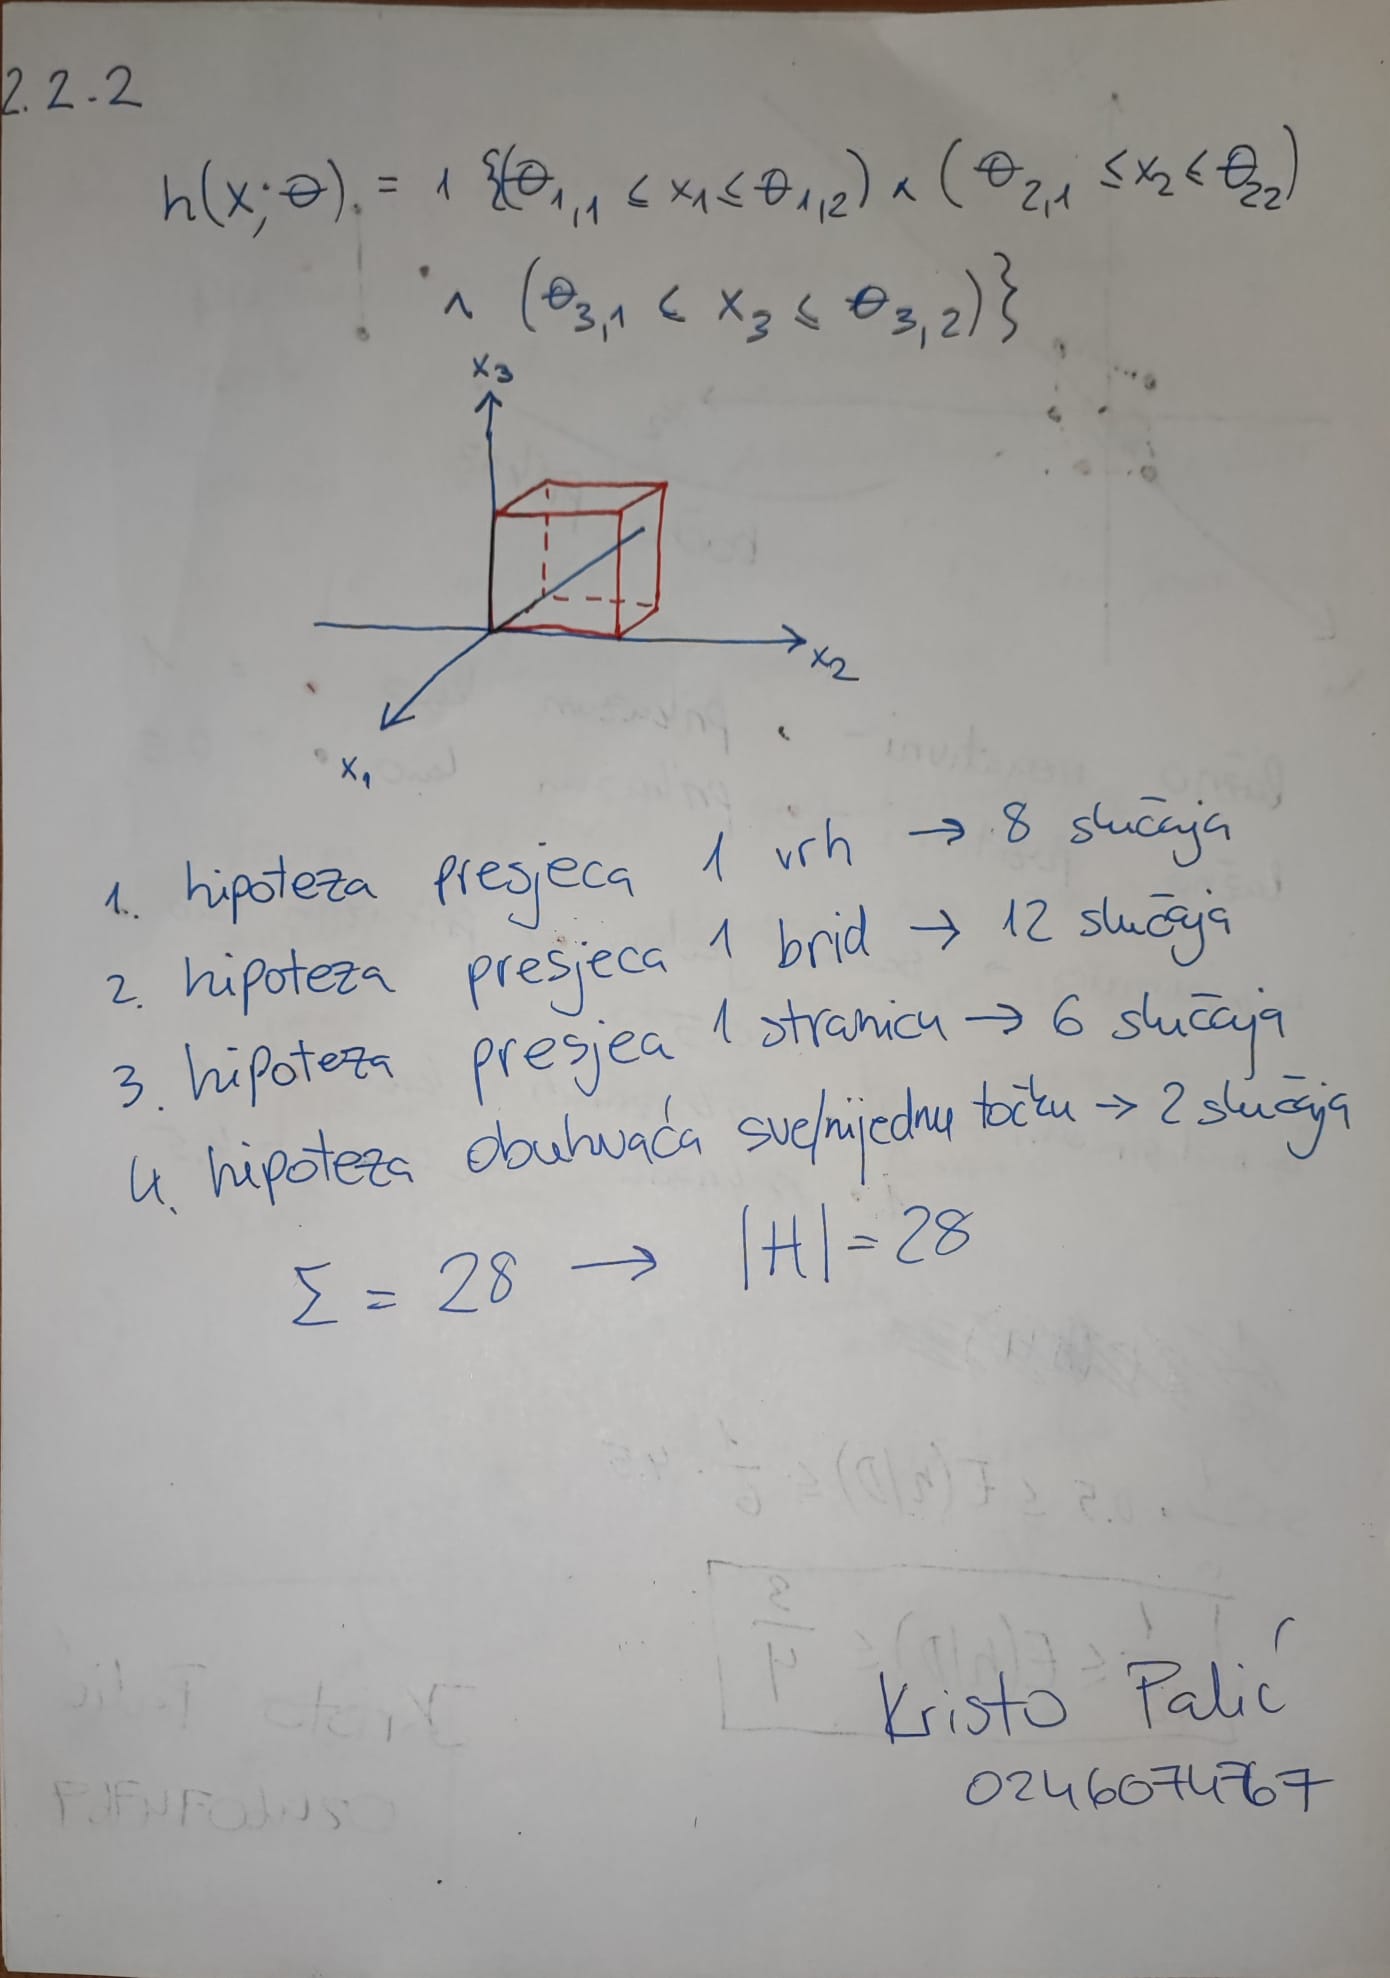 2.2.2
h(x;θ) = 1 {(θ1,1 ≤ x1 ≤ θ1,2) ∧ (θ2,1 ≤ x2 ≤ θ22)
∧ (θ3,1 ≤ x3 ≤ θ3,2)}
x3
x2
x1
1. hipoteza presjeca 1 vrh → 8 slučaja
2. hipoteza presjeca 1 brid → 12 slučaja
3. hipoteza presjea 1 stranicu → 6 slučaja
4. hipoteza obuhvaća sve/nijednu točku → 2 slučaja
Σ = 28 → |H| = 28
Kristo Palić
0246074767